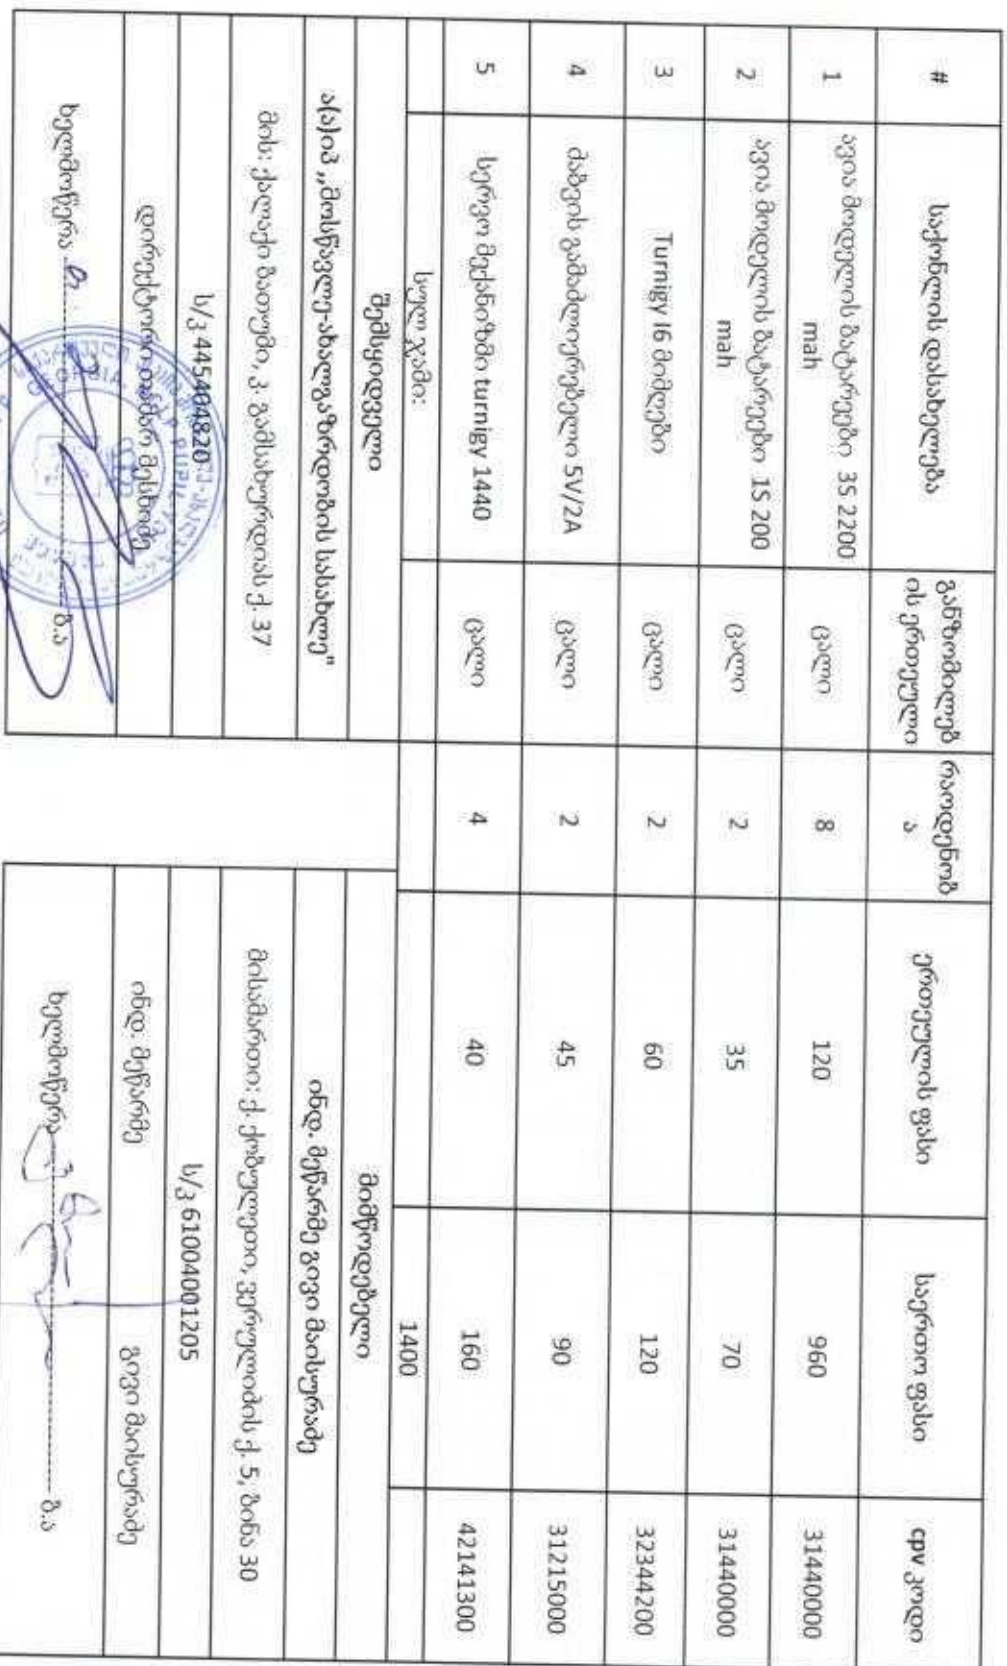 # საქონლის დასახელება განზომილებ ის ერთეული რაოდენობ ა ერთეულის ფასი საერთო ფასი cpv კოდი
1 ავია მოდელის ბატარეები 3S 2200 mah ცალი 8 120 960 31440000
2 ავია მოდელის ბატარეები 1S 200 mah ცალი 2 35 70 31440000
3 Turnigy I6 მიმღები ცალი 2 60 120 32344200
4 ძაბვის გამაძლიერებელი 5V/2A ცალი 2 45 90 31215000
5 სერვო მექანიზმი turnigy 1440 ცალი 4 40 160 42141300
სულ ჯამი: 1400
შემსყიდველი
ა(ა)იპ „მოსწავლე-ახალგაზრდობის სასახლე"
მის: ქალაქი ბათუმი, კ. გამსახურდიას ქ. 37
ს/კ 445404820
დირექტორი თამარ მესხიძე
ხელმოწერა ბ.ა
მიმწოდებელი
ინდ. მეწარმე გივი მაისურაძე
მისამართი: ქ. ქობულეთი, ვერულიძის ქ. 5, ბინა 30
ს/კ 61004001205
ინდ. მეწარმე გივი მაისურაძე
ხელმოწერა ბ.ა